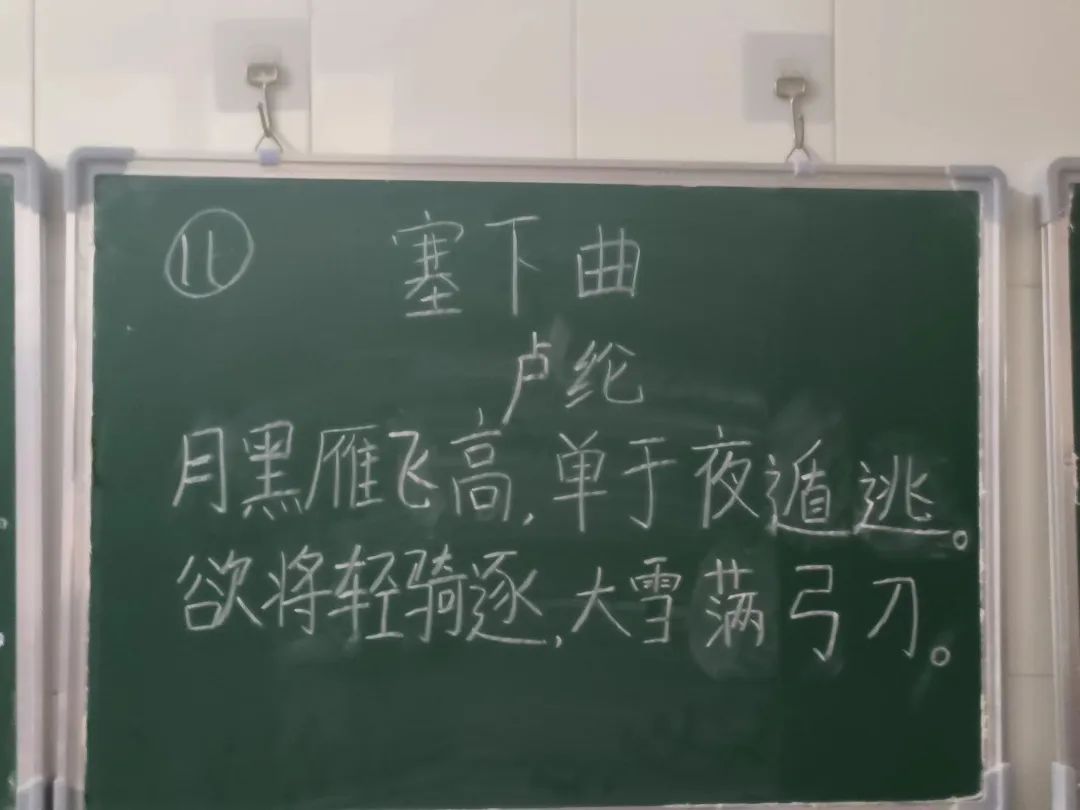 ⑪ 塞下曲
卢纶
月黑雁飞高,单于夜遁逃。
欲将轻骑逐,大雪满弓刀。